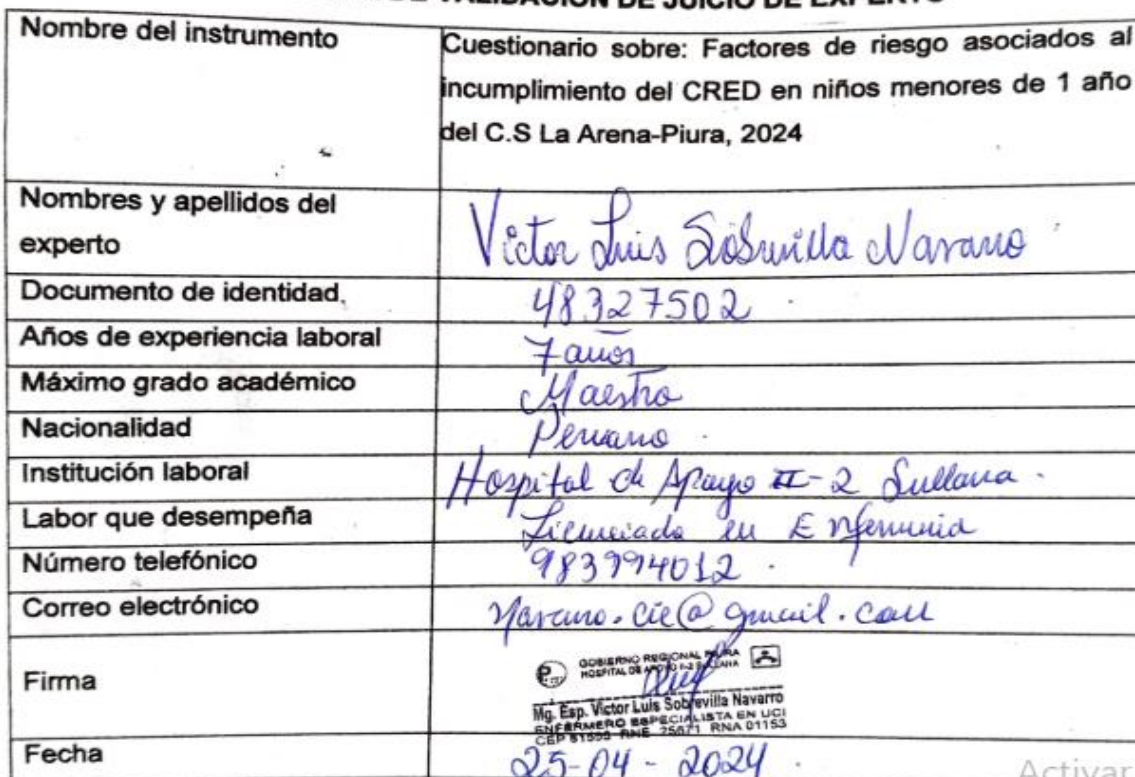 DE VALIDACIÓN DE JUICIO DE EXPERTO
Nombre del instrumento
Cuestionario sobre: Factores de riesgo asociados al
incumplimiento del CRED en niños menores de 1 año
del C.S La Arena-Piura, 2024
Nombres y apellidos del
experto
Victor Luis Sobrevilla Navarro
Documento de identidad.
48327502
Años de experiencia laboral
7 años
Máximo grado académico
Maestro
Nacionalidad
Peruano
Institución laboral
Hospital de Apoyo II-2 Sullana.
Labor que desempeña
Licenciado en Enfermería
Número telefónico
983994012
Correo electrónico
@gmail.com
Firma
GOBIERNO REGIONAL PIURA
HOSPITAL DE APOYO II-2 SULLANA
Mg. Esp. Victor Luis Sobrevilla Navarro
ENFERMERO ESPECIALISTA EN UCI
CEP RNE 25671 RNA 01153
Fecha
25-04-2024
Activar